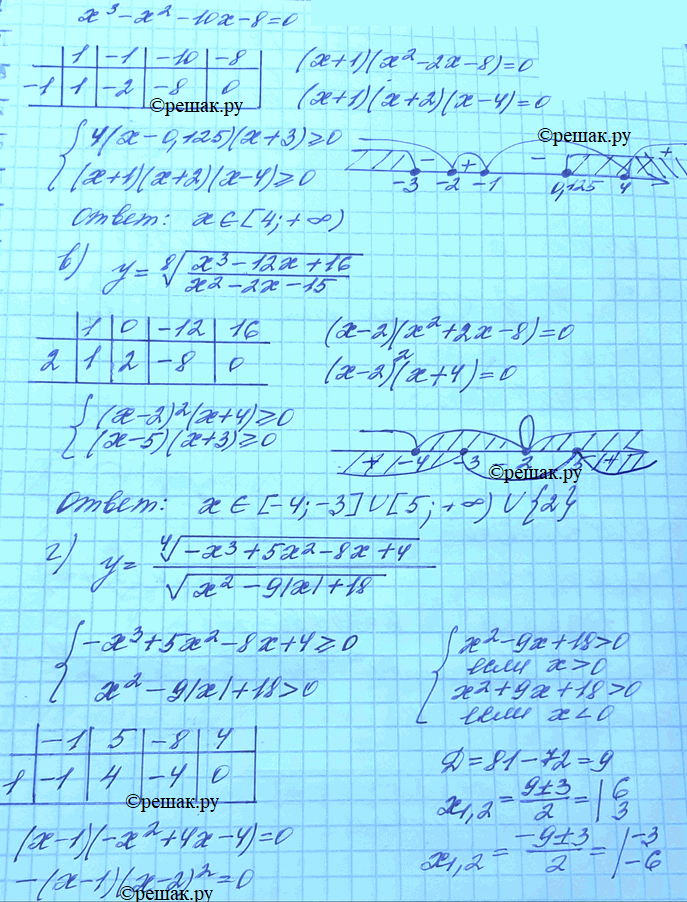 x³-x²-10x-8=0
1 | -1 | -10 | -8
-1 | 1 | -2 | -8 | 0
(x+1)(x²-2x-8)=0
(x+1)(x+2)(x-4)=0
©решак.ру
©решак.ру
{ 4(x-0,125)(x+3)≥0
(x+1)(x+2)(x-4)≥0
- + - +
-3 -2 -1 0,125 4
Ответ: x∈[4;+∞)
в) y=⁸√((x³-12x+16)/(x²-2x-15))
1 | 0 | -12 | 16
2 | 1 | 2 | -8 | 0
(x-2)(x²+2x-8)=0
(x-2)²(x+4)=0
{ (x-2)²(x+4)≥0
(x-5)(x+3)≥0
+ -4 -3 2 5 +
©решак.ру
Ответ: x∈[-4;-3]∪[5;+∞)∪{2}
г) y=⁴√(-x³+5x²-8x+4)/√(x²-9|x|+18)
{ -x³+5x²-8x+4≥0
x²-9|x|+18>0
{ x²-9x+18>0
если x>0
x²+9x+18>0
если x<0
-1 | 5 | -8 | 4
1 | -1 | 4 | -4 | 0
©решак.ру
Д=81-72=9
x₁,₂=(9±3)/2=| 6 3
x₁,₂=(-9±3)/2=| -3 -6
(x-1)(-x²+4x-4)=0
-(x-1)(x-2)²=0
©решак.ру